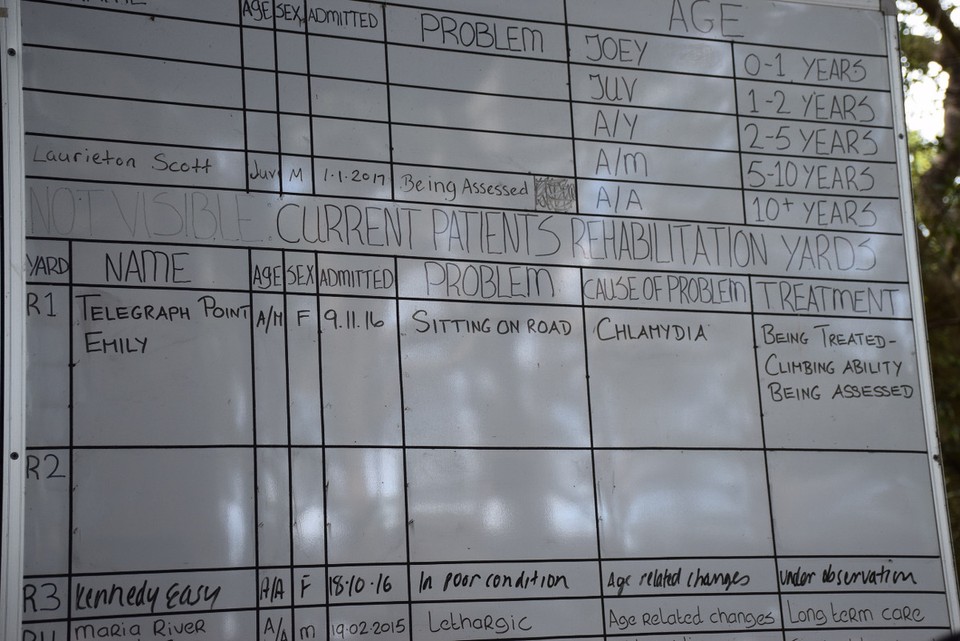 AGE SEX ADMITTED PROBLEM AGE
JOEY 0-1 YEARS
JUV 1-2 YEARS
A/Y 2-5 YEARS
A/M 5-10 YEARS
A/A 10+ YEARS
Laurieton Scott Juv M 1.1.2017 Being Assessed
NOT VISIBLE: CURRENT PATIENTS REHABILITATION YARDS
YARD NAME AGE SEX ADMITTED PROBLEM CAUSE OF PROBLEM TREATMENT
R1 TELEGRAPH POINT A/M F 9.11.16 SITTING ON ROAD CHLAMYDIA BEING TREATED-
EMILY CLIMBING ABILITY
BEING ASSESSED
R2
R3 Kennedy Easy A/A F 18.10.16 In poor condition Age related changes under observation
R4 Maria River A/A m 19.02.2015 Lethargic Age Related changes Long term care